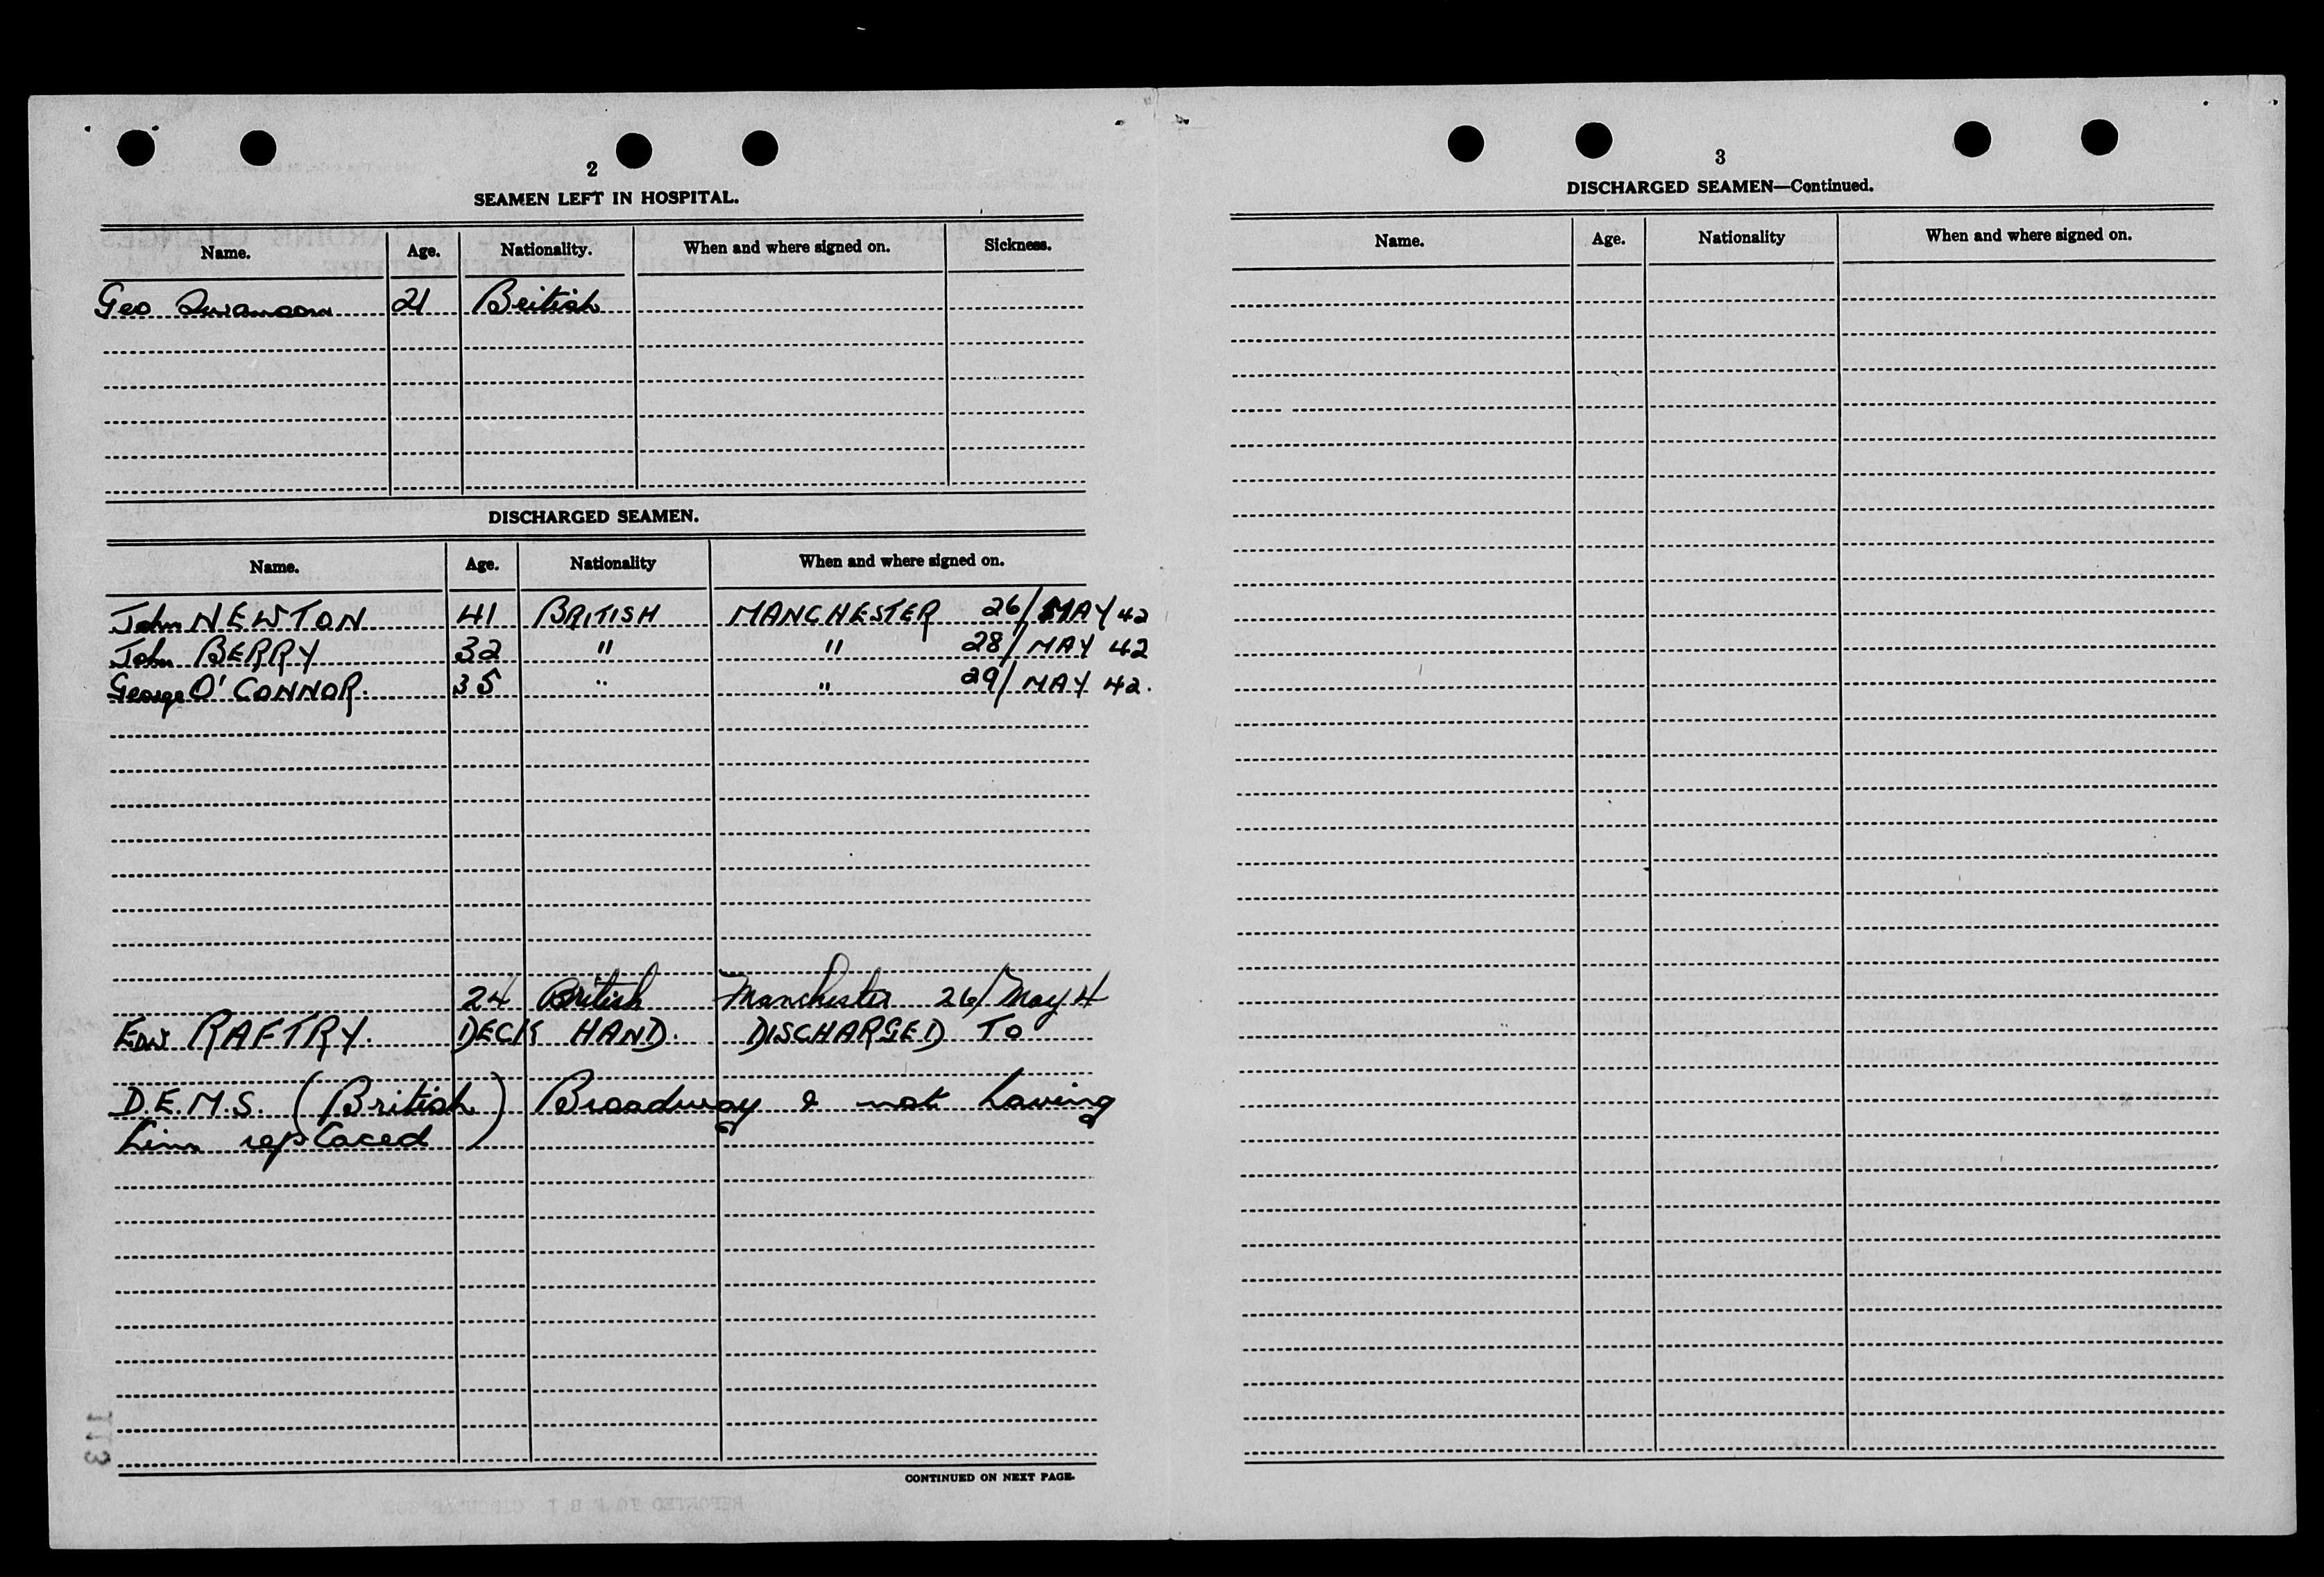 2
SEAMEN LEFT IN HOSPITAL.
Name. Age. Nationality. When and where signed on. Sickness.
Geo Swanson 21 British
DISCHARGED SEAMEN.
Name. Age. Nationality When and where signed on.
John NEWTON 41 BRITISH MANCHESTER 26/MAY 42
John BERRY 32 " " 28/MAY 42
George O'CONNOR. 35 " " 29/MAY 42.
24 British Manchester 26/May 4
EDW RAFTRY. DECK HAND. DISCHARGED TO
D.E.M.S. (British) Broadway & not having
him replaced
CONTINUED ON NEXT PAGE.
113
3
DISCHARGED SEAMEN—Continued.
Name. Age. Nationality When and where signed on.